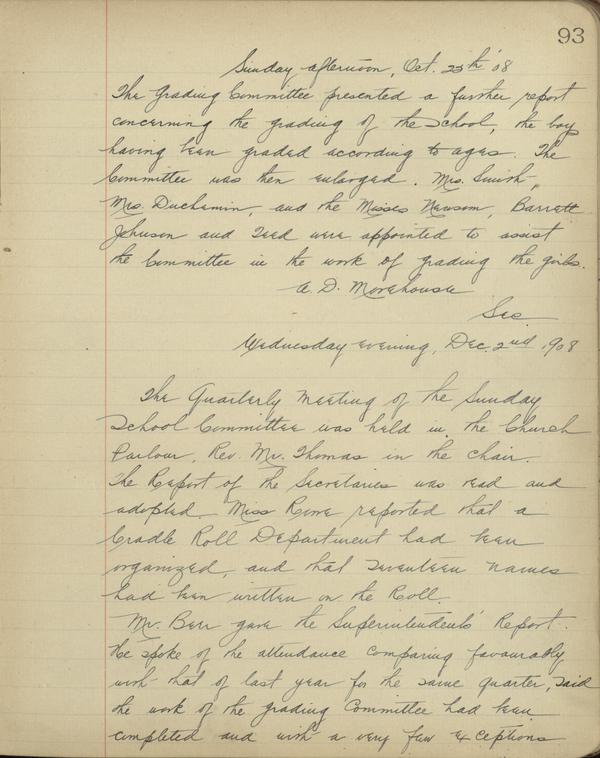 93
Sunday afternoon, Oct. 25th '08
The Grading Committee presented a further report
concerning the grading of the School, the boys
having been graded according to ages. The
Committee was then enlarged. Mrs. Smith,
Mrs. Duchemin, and the Misses Newsom, Barrett
Johnson and Teed were appointed to assist
the Committee in the work of grading the girls.
A. D. Morehouse
Sec.
Wednesday evening, Dec. 2nd 1908
The Quarterly Meeting of the Sunday
School Committee was held in the Church
Parlour, Rev. Mr. Thomas in the chair.
The Report of the Secretaries was read and
adopted. Miss Rowe reported that a
Cradle Roll Department had been
organized, and that seventeen names
had been written on the Roll.
Mr. Berr gave the Superintendents' Report.
He spoke of the attendance comparing favourably
with that of last year for the same quarter, said
the work of the grading Committee had been
completed and with a very few exceptions